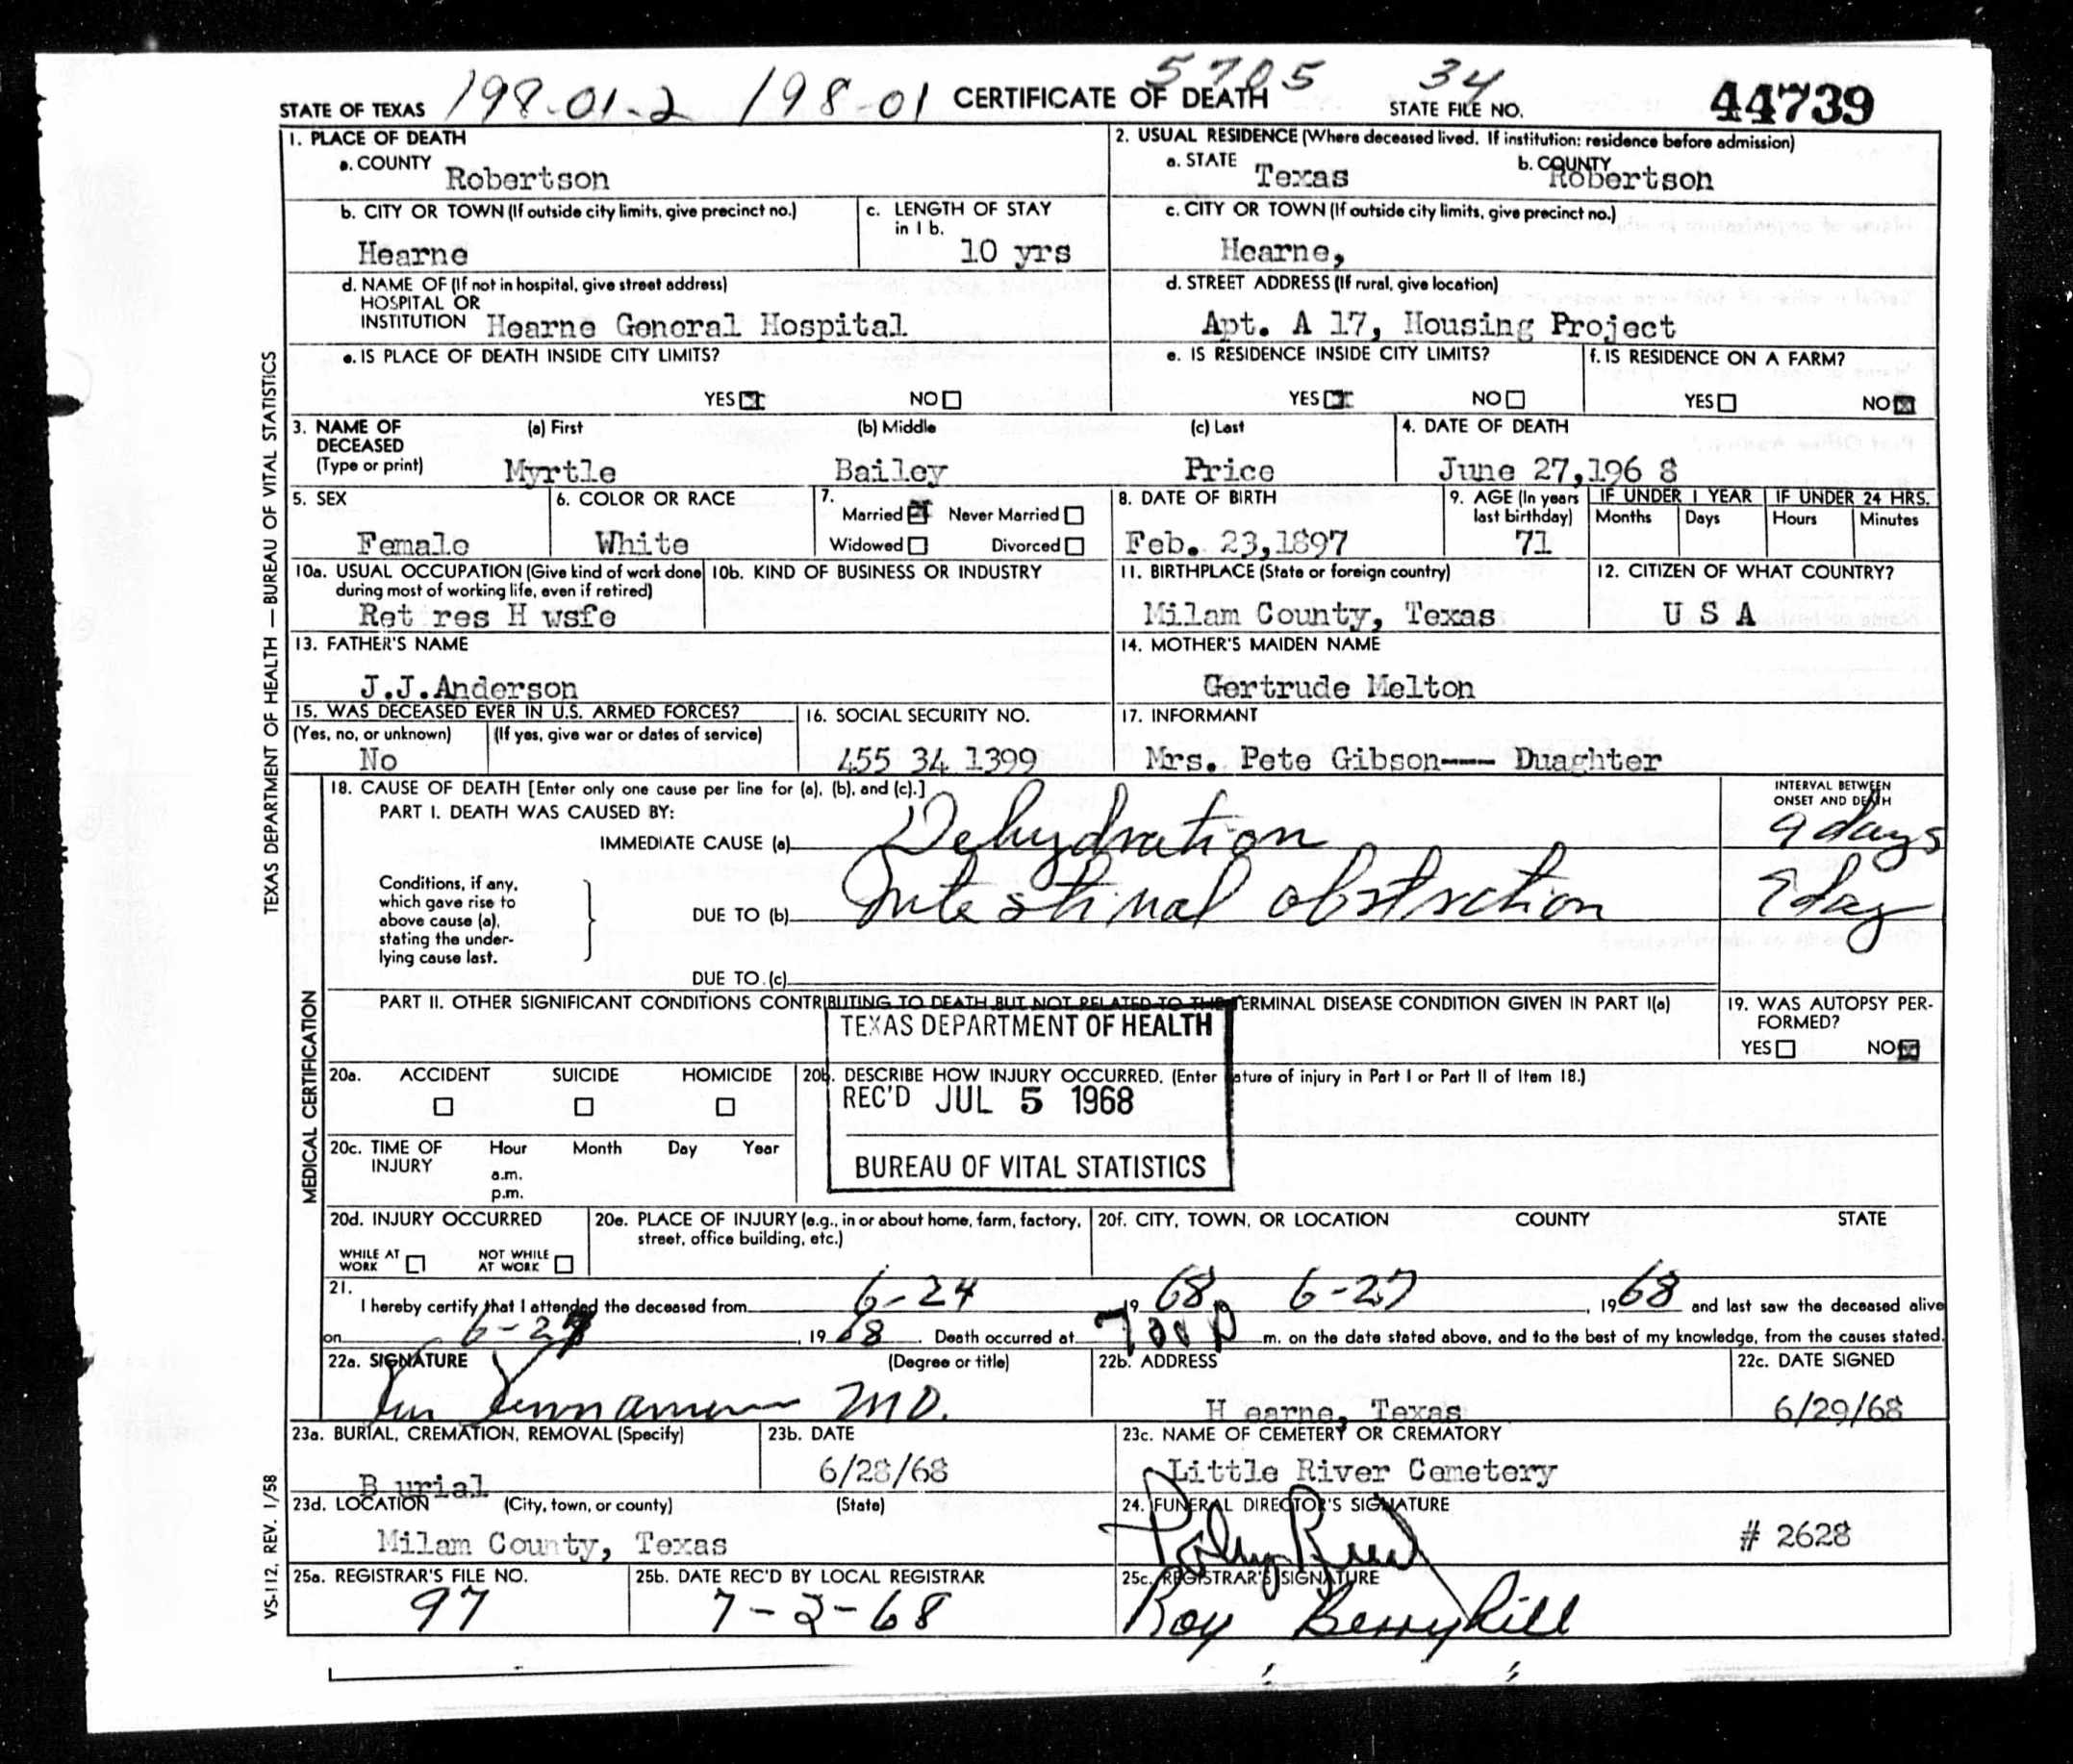 5705 34
STATE OF TEXAS 198-01-2 198-01 CERTIFICATE OF DEATH STATE FILE NO. 44739
1. PLACE OF DEATH
a. COUNTY Robertson
2. USUAL RESIDENCE (Where deceased lived. If institution: residence before admission)
a. STATE Texas b. COUNTY Robertson
b. CITY OR TOWN (If outside city limits, give precinct no.)
Hearne
c. LENGTH OF STAY in 1 b.
10 yrs
c. CITY OR TOWN (If outside city limits, give precinct no.)
Hearne,
d. NAME OF (If not in hospital, give street address)
HOSPITAL OR
INSTITUTION Hearne General Hospital
d. STREET ADDRESS (If rural, give location)
Apt. A 17, Housing Project
e. IS PLACE OF DEATH INSIDE CITY LIMITS?
YES NO
e. IS RESIDENCE INSIDE CITY LIMITS?
YES NO
f. IS RESIDENCE ON A FARM?
YES NO
3. NAME OF DECEASED (Type or print)
(a) First (b) Middle (c) Last
Myrtle Bailey Price
4. DATE OF DEATH
June 27,196 8
5. SEX
Female
6. COLOR OR RACE
White
7.
Married Never Married
Widowed Divorced
8. DATE OF BIRTH
Feb. 23,1897
9. AGE (In years last birthday)
71
IF UNDER 1 YEAR
Months Days
IF UNDER 24 HRS.
Hours Minutes
10a. USUAL OCCUPATION (Give kind of work done during most of working life, even if retired)
Ret res H wsfe
10b. KIND OF BUSINESS OR INDUSTRY
11. BIRTHPLACE (State or foreign country)
Milam County, Texas
12. CITIZEN OF WHAT COUNTRY?
U S A
13. FATHER'S NAME
J.J.Anderson
14. MOTHER'S MAIDEN NAME
Gertrude Melton
15. WAS DECEASED EVER IN U.S. ARMED FORCES?
(Yes, no, or unknown) (If yes, give war or dates of service)
No
16. SOCIAL SECURITY NO.
455 34 1399
17. INFORMANT
Mrs. Pete Gibson--- Duaghter
18. CAUSE OF DEATH [Enter only one cause per line for (a), (b), and (c).]
PART I. DEATH WAS CAUSED BY:
IMMEDIATE CAUSE (a) Dehydration
INTERVAL BETWEEN ONSET AND DEATH
9 days
Conditions, if any, which gave rise to above cause (a), stating the underlying cause last.
DUE TO (b) Intestinal obstruction
day
DUE TO (c)
PART II. OTHER SIGNIFICANT CONDITIONS CONTRIBUTING TO DEATH BUT NOT RELATED TO THE TERMINAL DISEASE CONDITION GIVEN IN PART I(a)
19. WAS AUTOPSY PERFORMED?
YES NO
TEXAS DEPARTMENT OF HEALTH
REC'D JUL 5 1968
BUREAU OF VITAL STATISTICS
20a. ACCIDENT SUICIDE HOMICIDE
20b. DESCRIBE HOW INJURY OCCURRED. (Enter nature of injury in Part I or Part II of Item 18.)
20c. TIME OF INJURY
Hour Month Day Year
a.m.
p.m.
20d. INJURY OCCURRED
WHILE AT WORK NOT WHILE AT WORK
20e. PLACE OF INJURY (e.g., in or about home, farm, factory, street, office building, etc.)
20f. CITY, TOWN, OR LOCATION COUNTY STATE
21.
I hereby certify that I attended the deceased from 6-24 19 68 6-27, 1968 and last saw the deceased alive
on 6-27, 19 68. Death occurred at 7 00 P m. on the date stated above, and to the best of my knowledge, from the causes stated.
22a. SIGNATURE (Degree or title)
MD.
22b. ADDRESS
H earne, Texas
22c. DATE SIGNED
6/29/68
23a. BURIAL, CREMATION, REMOVAL (Specify)
B urial
23b. DATE
6/28/68
23c. NAME OF CEMETERY OR CREMATORY
Little River Cemetery
23d. LOCATION (City, town, or county) (State)
Milam County, Texas
24. FUNERAL DIRECTOR'S SIGNATURE
# 2628
25a. REGISTRAR'S FILE NO.
97
25b. DATE REC'D BY LOCAL REGISTRAR
7-2-68
25c. REGISTRAR'S SIGNATURE
Roy Berryhill
TEXAS DEPARTMENT OF HEALTH — BUREAU OF VITAL STATISTICS
MEDICAL CERTIFICATION
VS-112, REV. 1/58